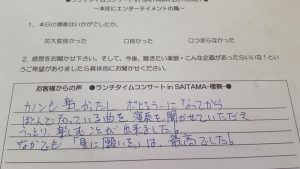 ～本庄にエンターテイメントの風～
1．本日の演奏はいかがでしたか。
☑大変良かった □良かった □つまらなかった
2．感想をお聞かせ下さい。そして、今後、聴きたい楽曲・こんな企画があったらいいな！という
ご希望がありましたら具体的にお聞かせください。
お客様からの声 ●ランチタイムコンサート in SAITAMA-
カノンも楽しかったし、
ほんとに知っている曲を、演奏を聞かせていただき
うっとり、楽しむことが出来ました。
なかでも「星に願いを」は、最高でした!